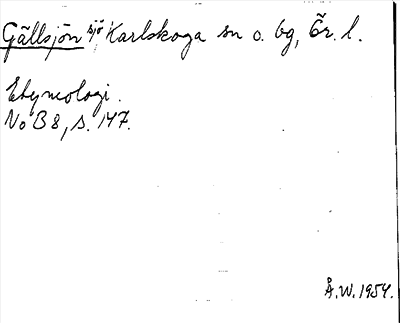 Gällsjön sjö, Karlskoga sn o. bg, Ör. l.
Etymologi.
NoB 8, s. 147.
Å.W. 1954.